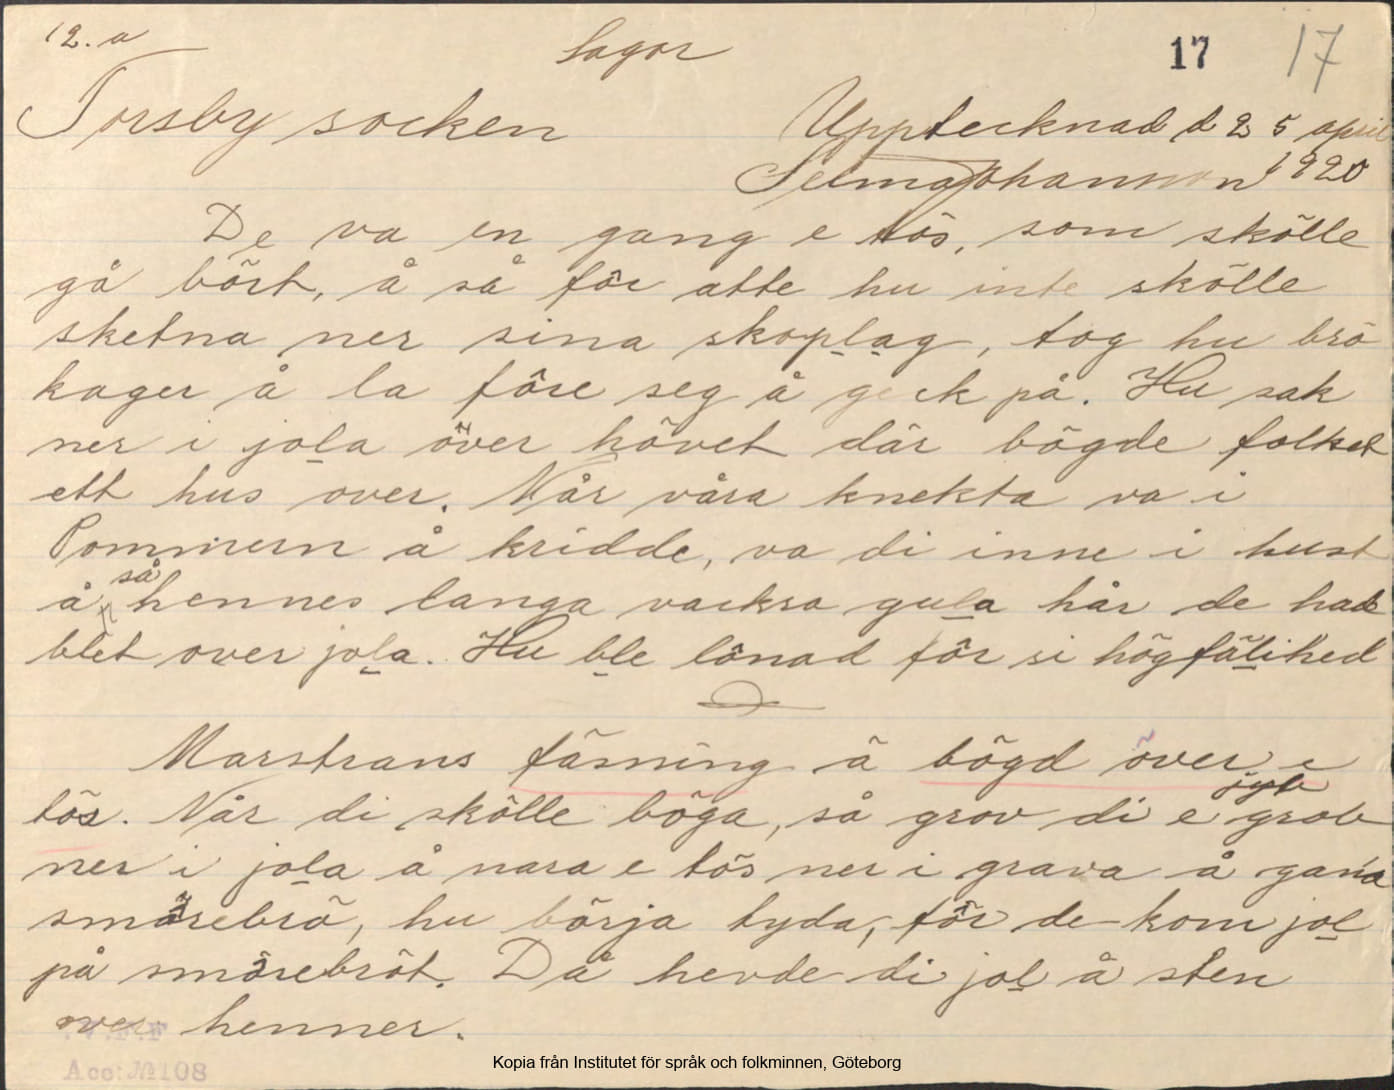 12. a
Sagor
17 17
Torsby socken
Upptecknad d 25 april
Selma Johansson 1920
De va en gang e tös, som skölle
gå bört, å så för atte hu inte skölle
sketna ner sina skoplag, tog hu brö
kager å la före seg å geck på. Hu sak
ner i jola över hövet där bögde folket
ett hus over. Når våra knekta va i
Pommern å kridde, va di inne i hust
å så hennes langa vackra gula hår de had
blet over jola. Hu ble lönad för si högfälihed
Marstrans fäsning ä bögd över e
tös. Når di skölle böga, så grov di e jyb grob
ner i jola å nara e tös ner i grava å gana
smörebrö, hu börja tyda, för de kom jol
på smörebröt. Då hevde di jol å sten
over henner.
V.F.F
Acc: № 108
Kopia från Institutet för språk och folkminnen, Göteborg